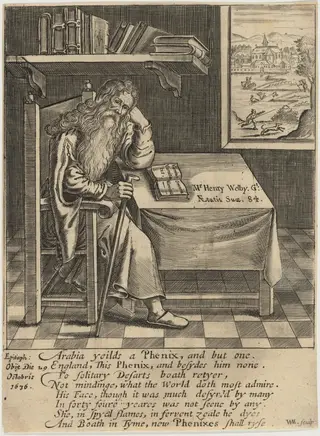 Mr Henry Welby. Gt.
Ætatis Suæ. 84.
Epitaph:
Obijt Die 29
Octobris
1636.
Arabia yeilds a Phenix, and but one.
England, This Phenix, and besydes him none.
To solitary Desarts boath retyer,
Not mindinge, what the World doth most admire.
His Face, though it was much desyr'd by many
In forty foure yeares was not seene by any.
She, in spyc'd flames, in fervent zeale he dyes
And Boath in Tyme, new Phenixes shall ryse
sculp: